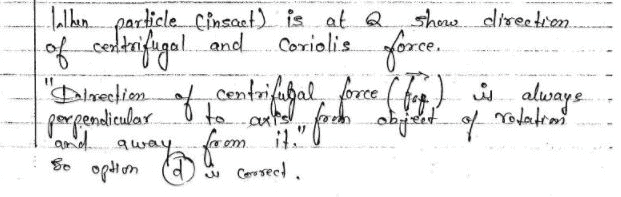 When particle (insect) is at Q show direction
of centrifugal and Coriolis force.
"Direction of centrifugal force (fcf) is always
perpendicular to axis from object of rotation
and away from it."
So option (d) is correct.